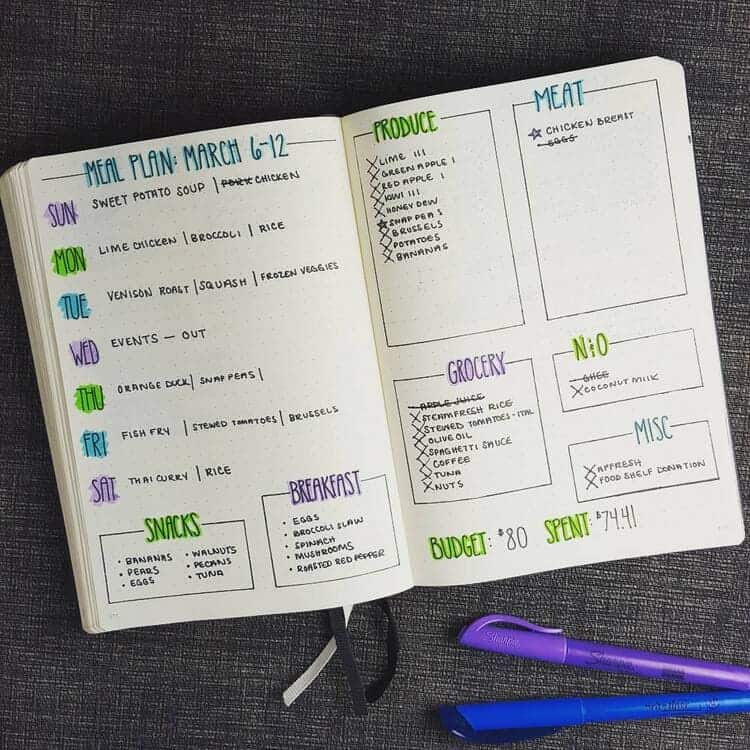 MEAL PLAN: MARCH 6-12
SUN
SWEET POTATO SOUP | PORK CHICKEN
MON
LIME CHICKEN | BROCCOLI | RICE
TUE
VENISON ROAST | SQUASH | FROZEN VEGGIES
WED
EVENTS — OUT
THU
ORANGE DUCK | SNAP PEAS |
FRI
FISH FRY | STEWED TOMATOES | BRUSSELS
SAT
THAI CURRY | RICE
SNACKS
• BANANAS
• PEARS
• EGGS
• WALNUTS
• PECANS
• TUNA
BREAKFAST
• EGGS
• BROCCOLI SLAW
• SPINACH
• MUSHROOMS
• ROASTED RED PEPPER
PRODUCE
LIME III
GREEN APPLE I
RED APPLE I
KIWI III
HONEY DEW
SNAP PEAS
BRUSSELS
POTATOES
BANANAS
MEAT
CHICKEN BREAST
EGGS
GROCERY
APPLE JUICE
STEAMFRESH RICE
STEWED TOMATOES - ITAL
OLIVE OIL
SPAGHETTI SAUCE
COFFEE
TUNA
NUTS
N&O
GHEE
COCONUT MILK
MISC
AFFRESH
FOOD SHELF DONATION
BUDGET: $80 SPENT: $74.41
Sharpie
Sharpie